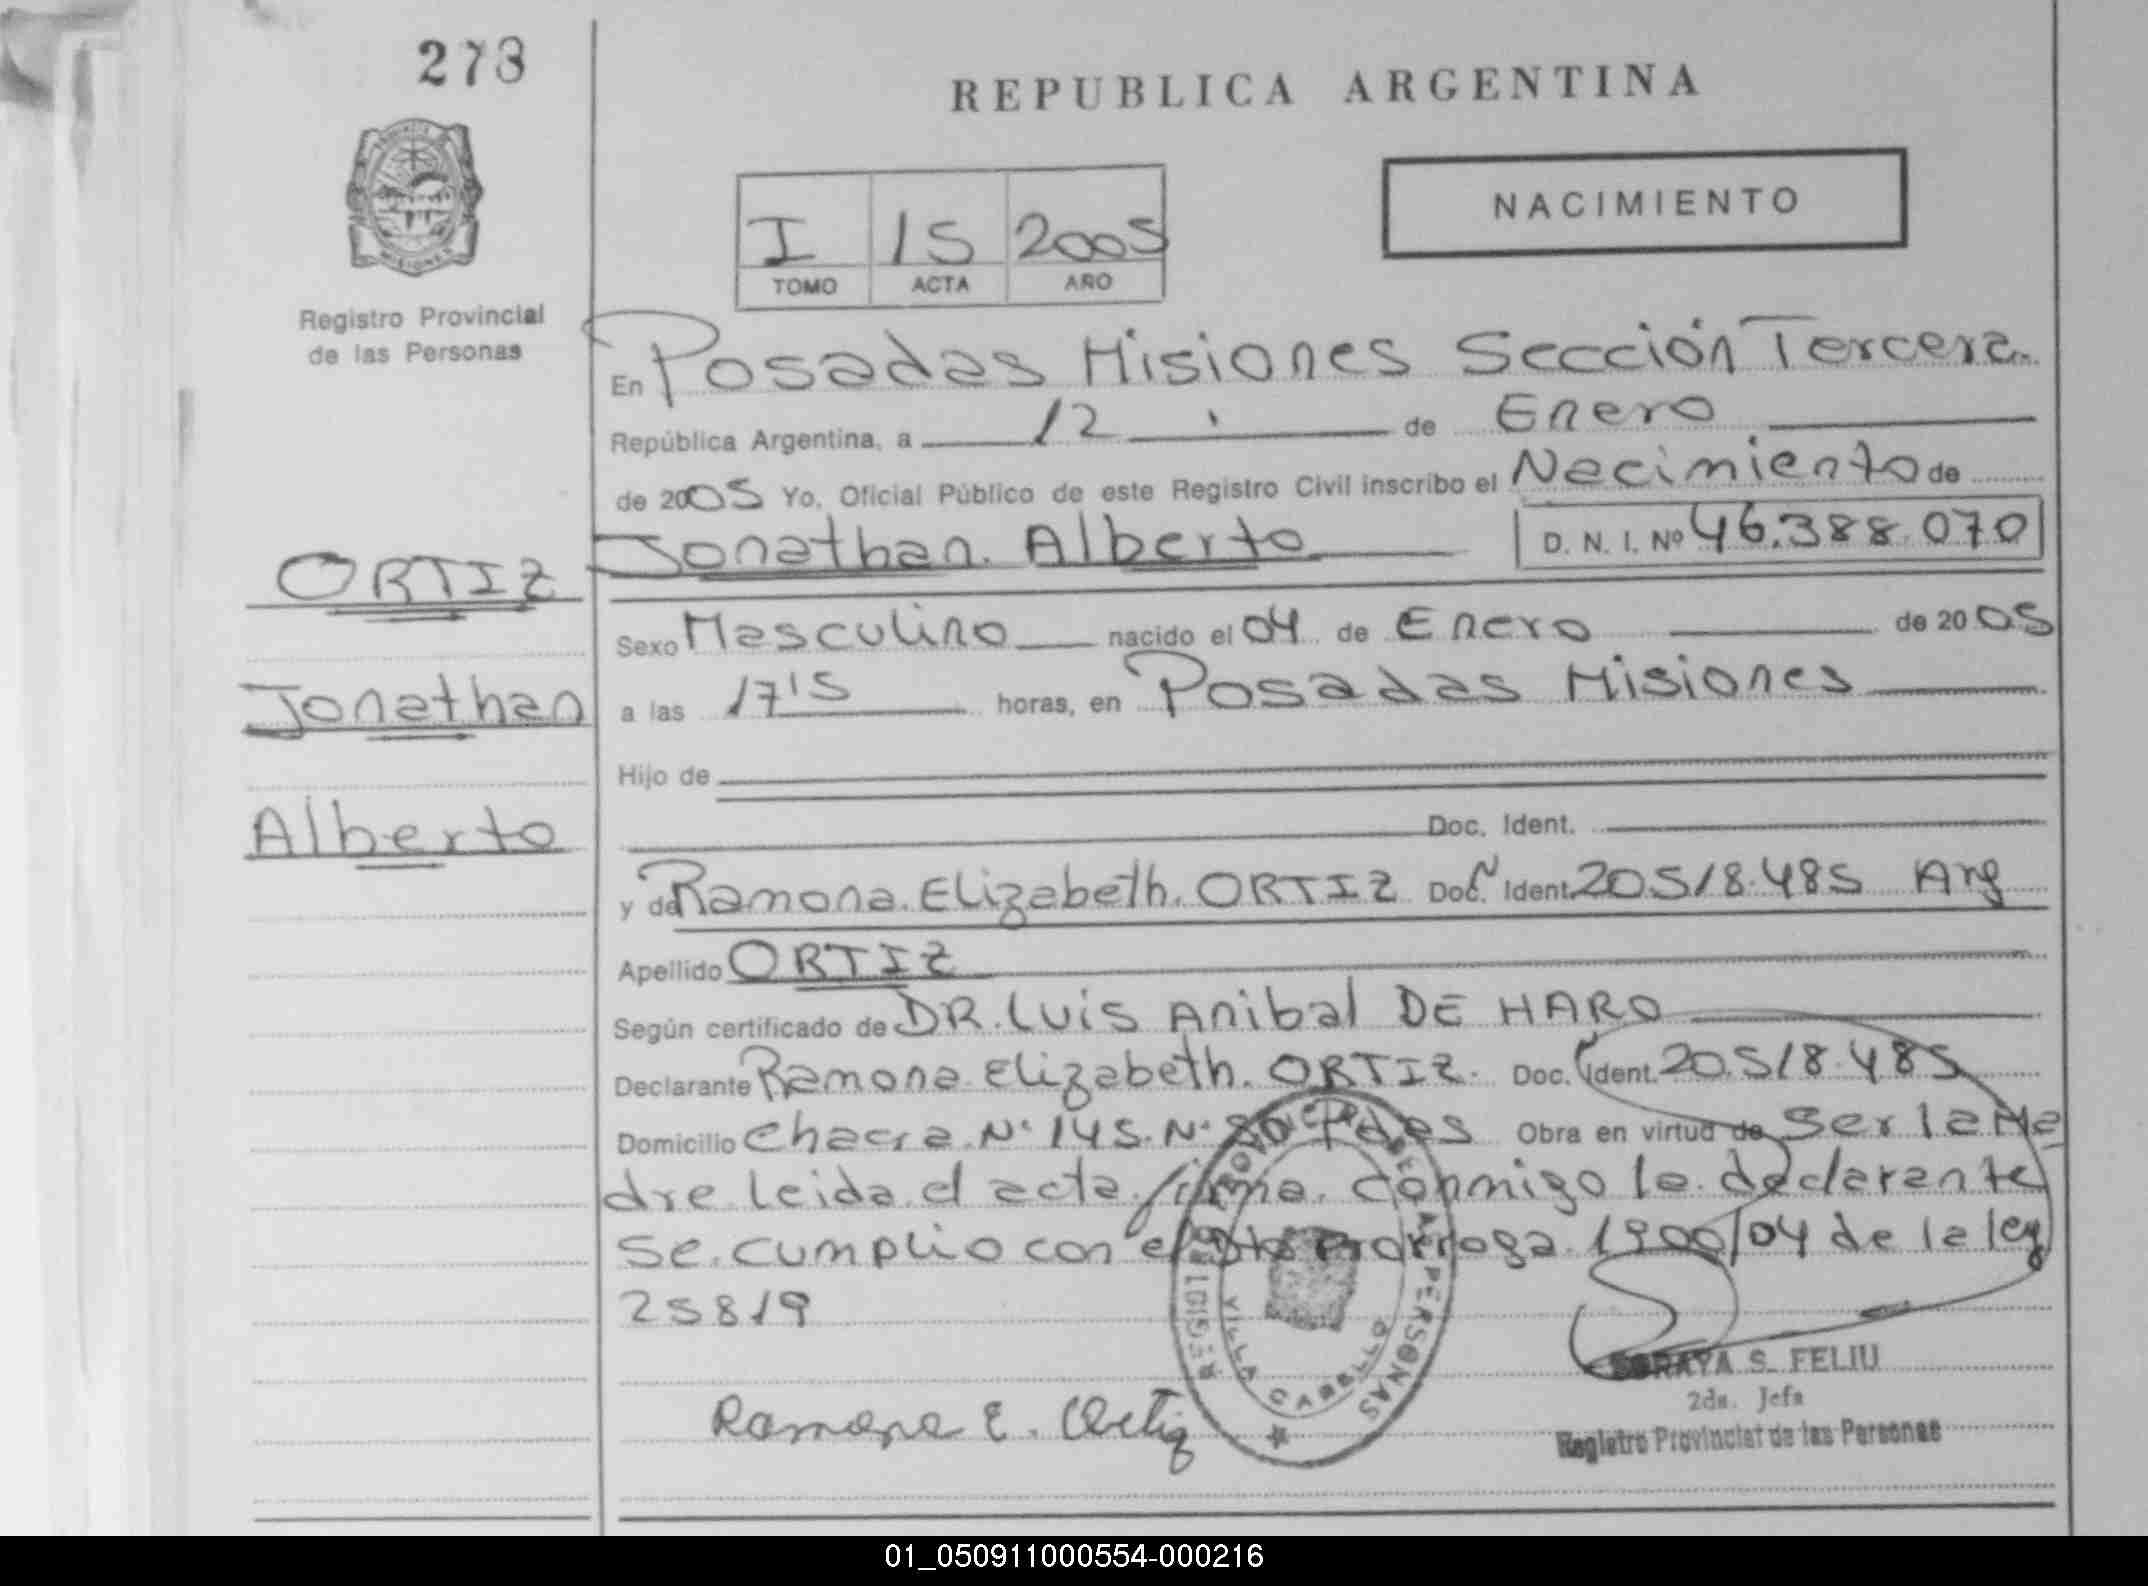 273
REPUBLICA ARGENTINA
NACIMIENTO
PROVINCIA
MISIONES
Registro Provincial
de las Personas
I 15 2005
TOMO ACTA AÑO
En Posadas Misiones Sección Tercera
República Argentina, a 12 de Enero
de 2005 Yo, Oficial Público de este Registro Civil inscribo el Nacimiento de
Jonathan. Alberto D. N. I. Nº 46.388.070
ORTIZ
Jonathan
Alberto
Sexo Masculino nacido el 04 de Enero de 2005
a las 17'5 horas, en Posadas Misiones
Hijo de
Doc. Ident.
y de Ramona. Elizabeth. ORTIZ Doc. Ident. 20518.485 Arg
Apellido ORTIZ
Según certificado de DR. Luis Anibal DE HARO
Declarante Ramona Elizabeth. ORTIZ. Doc. Ident. 20.518.485
Domicilio Chacra. Nº 145. Nº Pdas Obra en virtud de Ser la Ma
dre leida el acta firma conmigo la declarante
Se. cumplio con el Dto Prorroga 1900/04 de la ley
25819
Ramona E. Ortiz
REGISTRO PROVINCIAL DE LAS PERSONAS
VILLA CABELLO
SORAYA S. FELIU
2da. Jefa
Registro Provincial de las Personas
01_050911000554-000216